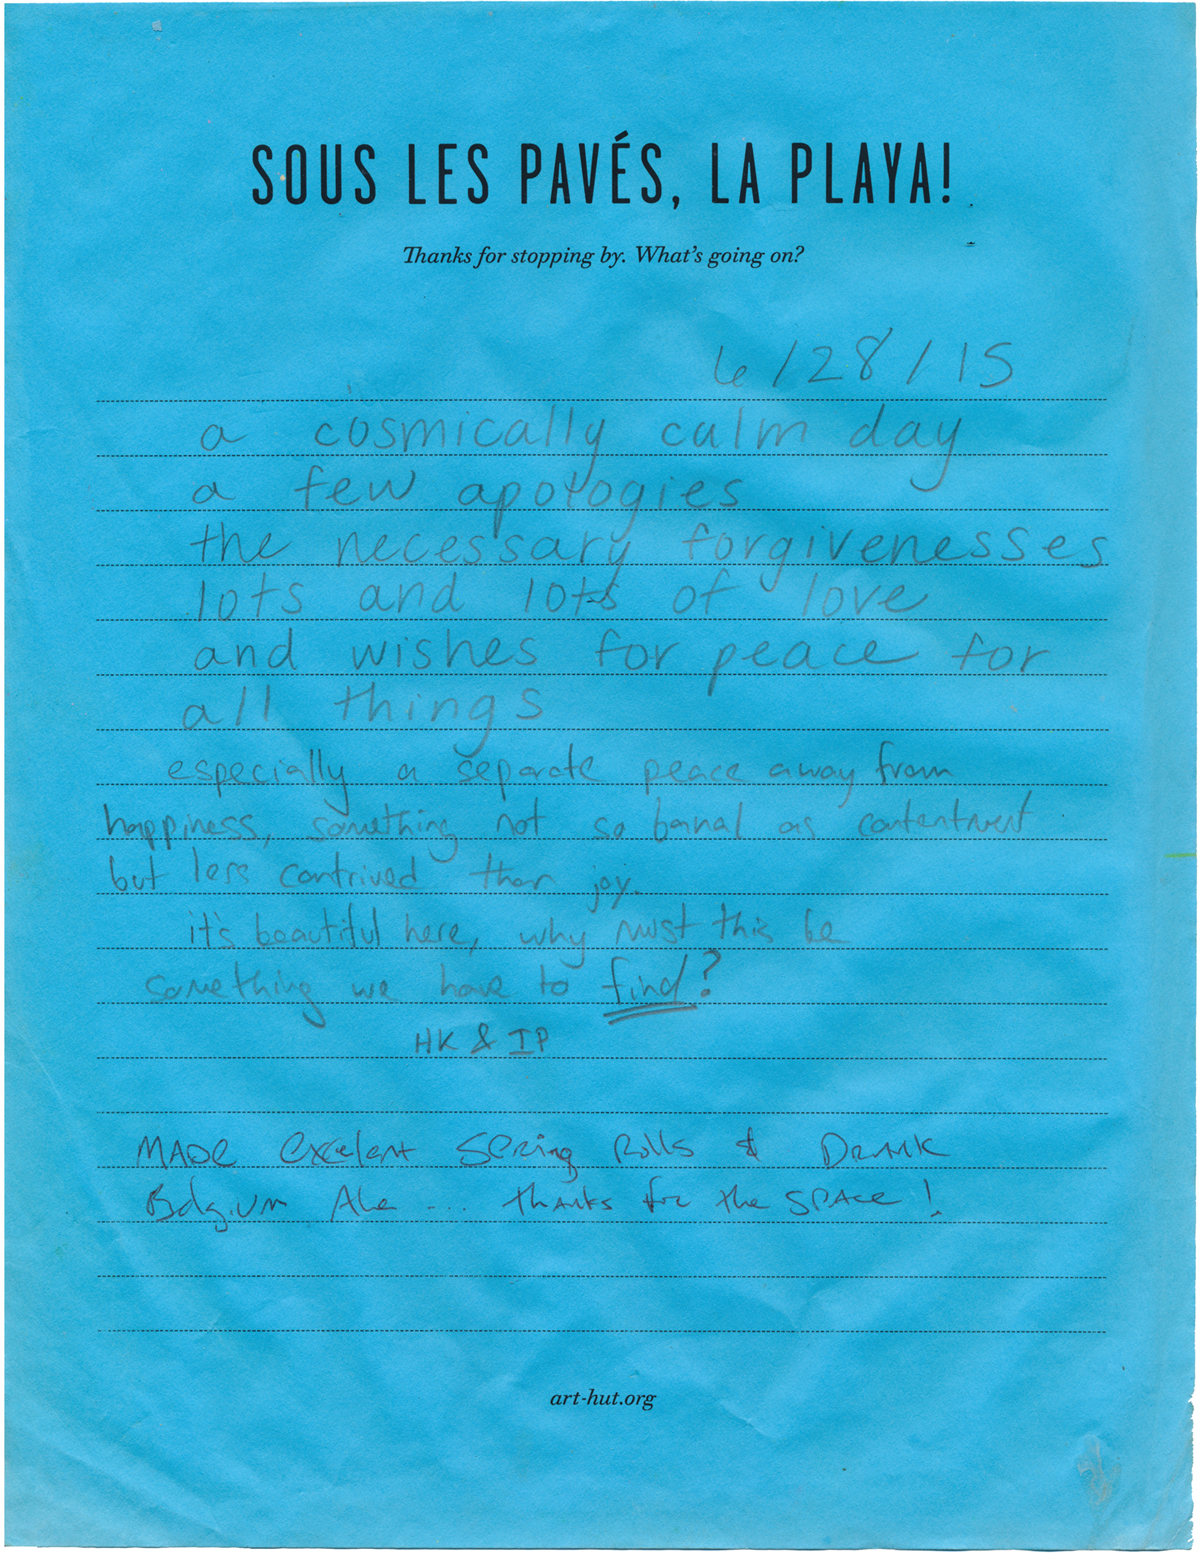 SOUS LES PAVÉS, LA PLAYA!
Thanks for stopping by. What's going on?
6/28/15
a cosmically calm day
a few apologies
the necessary forgivenesses
lots and lots of love
and wishes for peace for
all things
especially a separate peace away from
happiness, something not so banal as contentment
but less contrived than joy.
it's beautiful here, why must this be
something we have to find?
HK & IP
MADE excelent SPRing Rolls & DRANK
Belgium Ale ... thanks for the SPACE!
art-hut.org